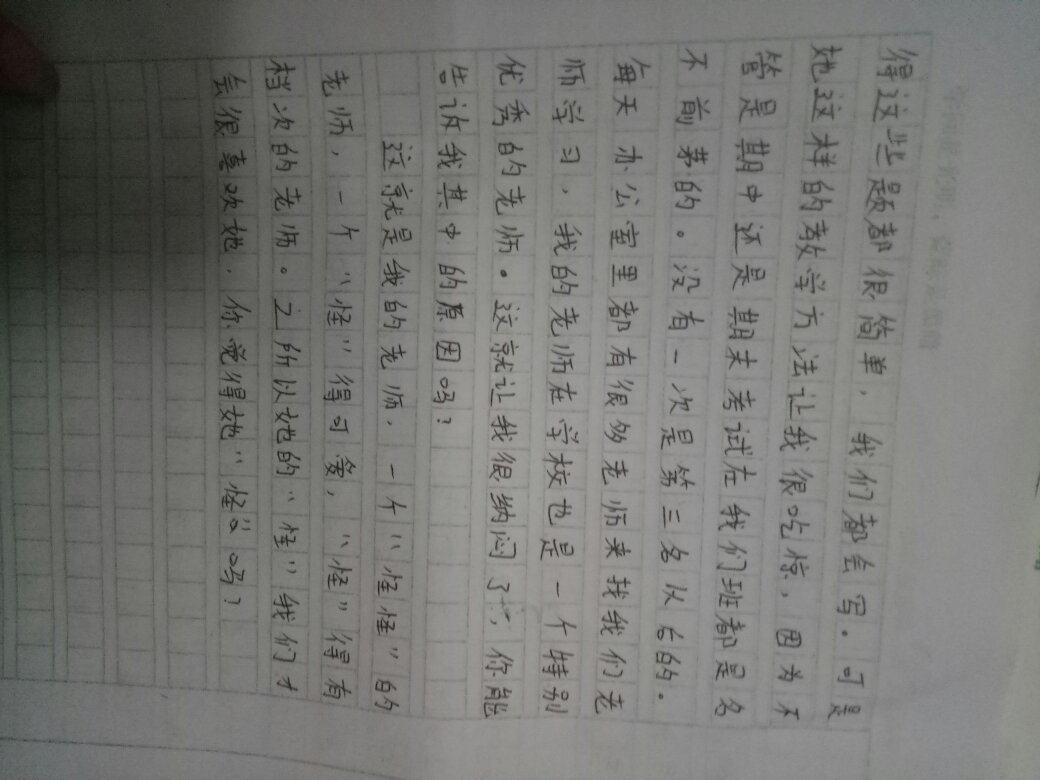 得这些题都很简单，我们都会写。可是
她这样的教学方法让我很吃惊，因为不
管是期中还是期末考试在我们班都是名
不前茅的。没有一次是第三名以后的。
每天办公室里都有很多老师来找我们老
师学习，我的老师在学校也是一个特别
优秀的老师。这就让我很纳闷了，你能
告诉我其中的原因吗？
这就是我的老师，一个“怪怪”的
老师，一个“怪”得可爱，“怪”得有
档次的老师。之所以她的“怪”我们才
会很喜欢她，你觉得她“怪”吗？